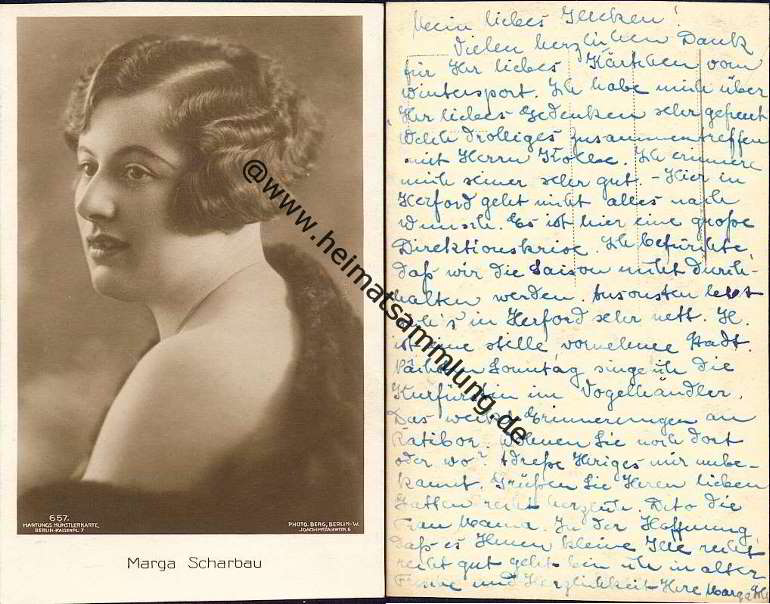 657.
HARTUNGS KÜNSTLERKARTE
BERLIN-KAISERPL. 7
PHOTO. BERG, BERLIN-W.
JOACHIMSTHALERSTR. 6
Marga Scharbau
@www.heimatsammlung.de
Mein liebes !
Vielen herzlichen Dank
für Ihr liebes Kärtchen vom
Wintersport. Ich habe mich über
Ihr liebes Gedenken sehr gefreut
Welch drolliges Zusammentreffen
mit Herrn . Ich erinnere
mich seiner sehr gut. - Hier in
Herford geht nicht alles nach
Wunsch. Es ist hier eine große
Direktionskrise. Ich befürchte,
daß wir die Saison nicht durch-
halten werden. Ansonsten lebt
sich's in Herford sehr nett. H.
ist eine stille, vornehme Stadt.
Nächsten Sonntag singe ich die
Kurfürstin im Vogelhändler.
Das weckt Erinnerungen an
Ratibor. Wohnen Sie noch dort
oder wo? Adreße Ihriges mir unbe-
kannt. Grüßen Sie Ihren lieben
Gatten recht herzlich. Dito die
Frau Mama. In der Hoffnung,
daß es Ihnen kleine recht
recht gut geht bin ich in alter
und Herzlichkeit Ihre Marga